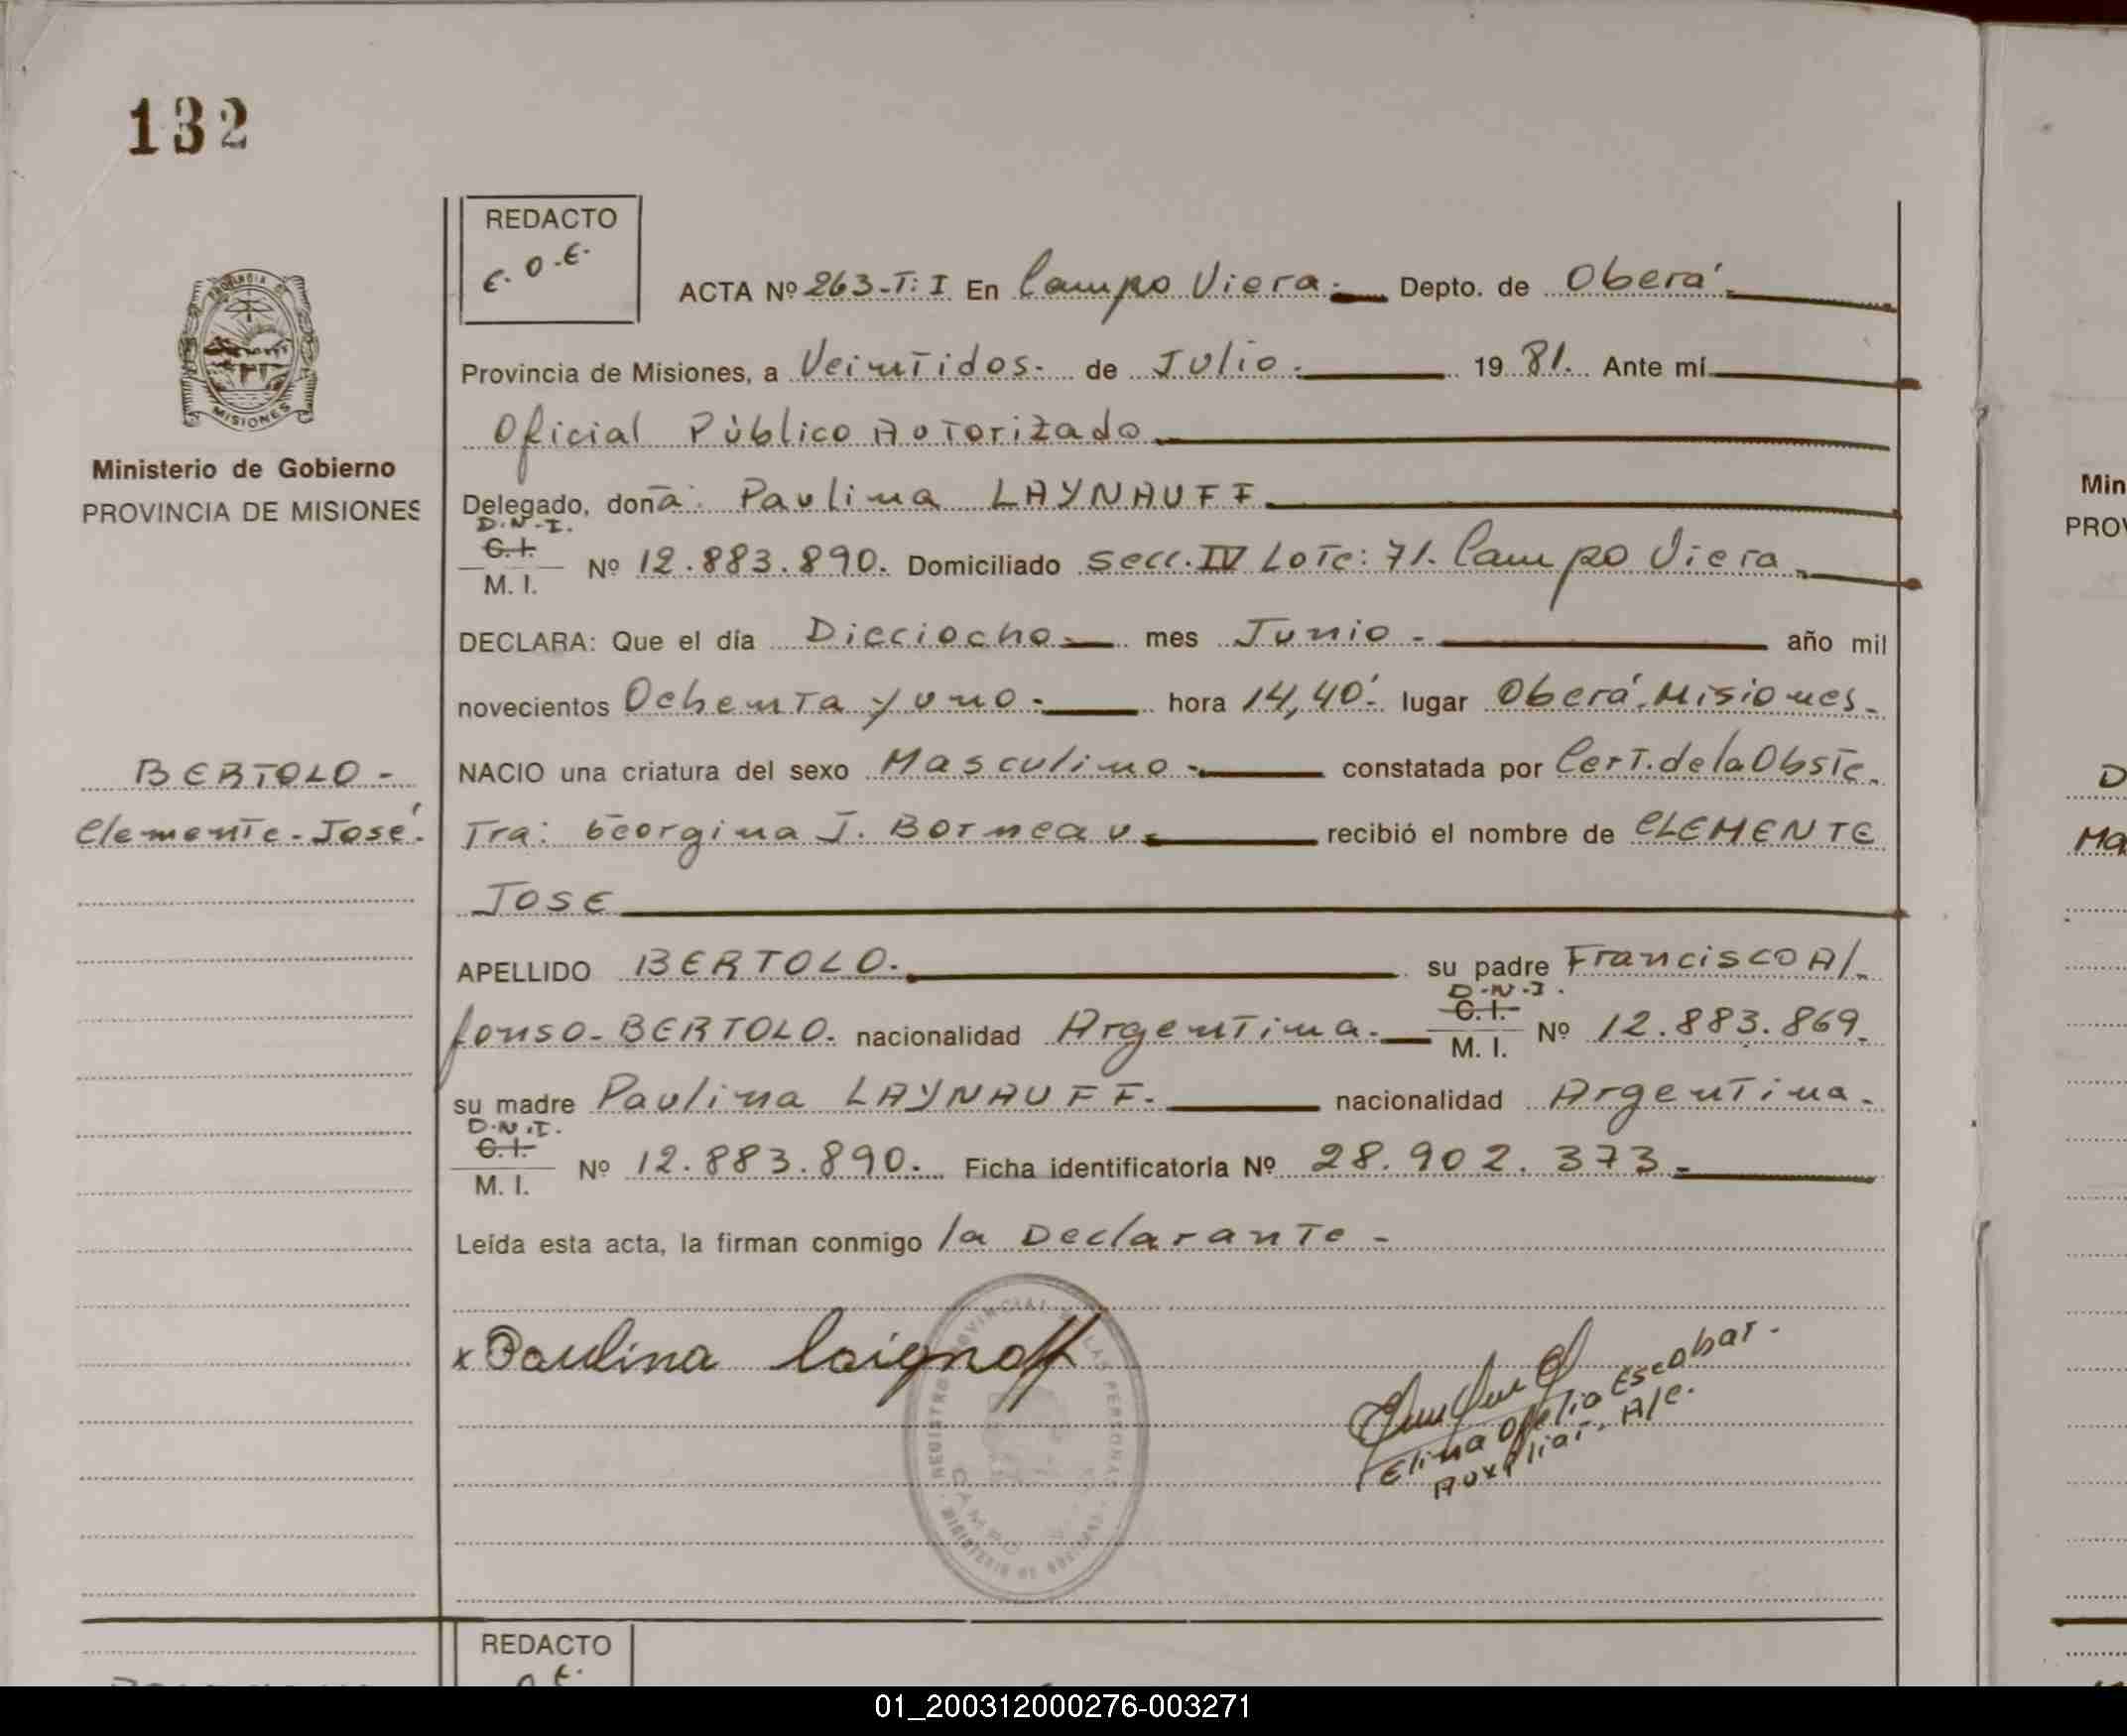 132
REDACTO
E.O.E.
ACTA Nº 263-T:I En Campo Viera. Depto. de Oberá.
Provincia de Misiones, a Veintidos. de Julio. 19 81. Ante mí
Oficial Público Autorizado
Ministerio de Gobierno
PROVINCIA DE MISIONES
Delegado, doña: Paulina LAYNAUFF.
D.N.I.
C.I.
M.I. Nº 12.883.890. Domiciliado Secc. IV Lote: 71. Campo Viera
DECLARA: Que el día Dieciocho mes Junio - año mil
novecientos Ochenta y uno. hora 14,40'. lugar Oberá, Misiones.
BERTOLO -
Clemente - José.
NACIO una criatura del sexo Masculino constatada por Cert. de la Obste.
Tra: Georgina J. Borneau. recibió el nombre de CLEMENTE
JOSE
APELLIDO BERTOLO. su padre Francisco Al.
fonso - BERTOLO. nacionalidad Argentina. D.N.I. C.I. M.I. Nº 12.883.869.
su madre Paulina LAYNAUFF. nacionalidad Argentina.
D.N.I.
C.I.
M.I. Nº 12.883.890. Ficha identificatoria Nº 28.902.373.
Leída esta acta, la firman conmigo la Declarante -
x Paulina Laignoff
Elina Ofelia Escobar.
Auxiliar, A/C.
REGISTRO PROVINCIAL DE LAS PERSONAS
CAMPO
MINISTERIO DE GOBIERNO
MISIONES
REDACTO
Min
PROV
D
Ma
01_200312000276-003271